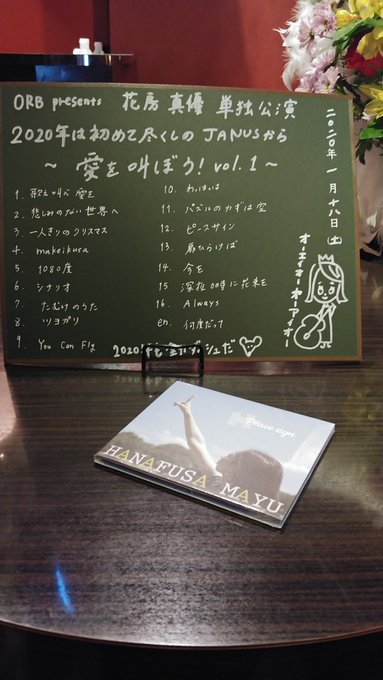 ORB presents 花房真優 単独公演
2020年は初めて尽くしのJANUSから
～ 愛を叫ぼう! vol.1 ～
二〇二〇年 一月十八日(土)
1. 歌え叫べ愛を
2. 悲しみのない世界へ
3. 一人きりのクリスマス
4. makeikusa
5. 1080度
6. シナリオ
7. たむけのうた
8. ツヨガリ
9. You Can Fly
10. わはは
11. パズルのカギは空
12. ピースサイン
13. 扉ひらけば
14. 今を
15. 深夜0時に花束を
16. Always
en. 何度だって
オーエイオーオーアイオー
2020年も
ダッシュだ
Peace sign
HANAFUSA MAYU